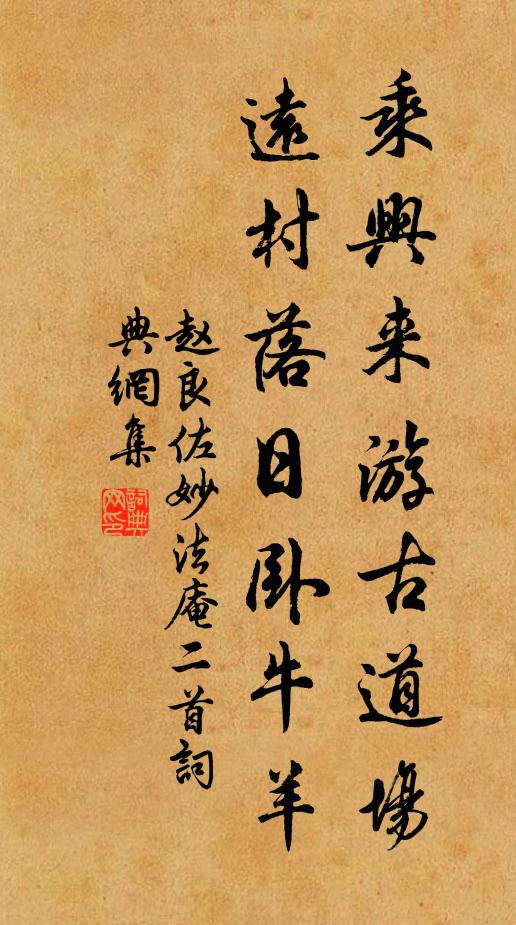 乘興来游古道場
遠村落日卧牛羊
赵良佐妙法庵二首詞
典網集
詞典
网印